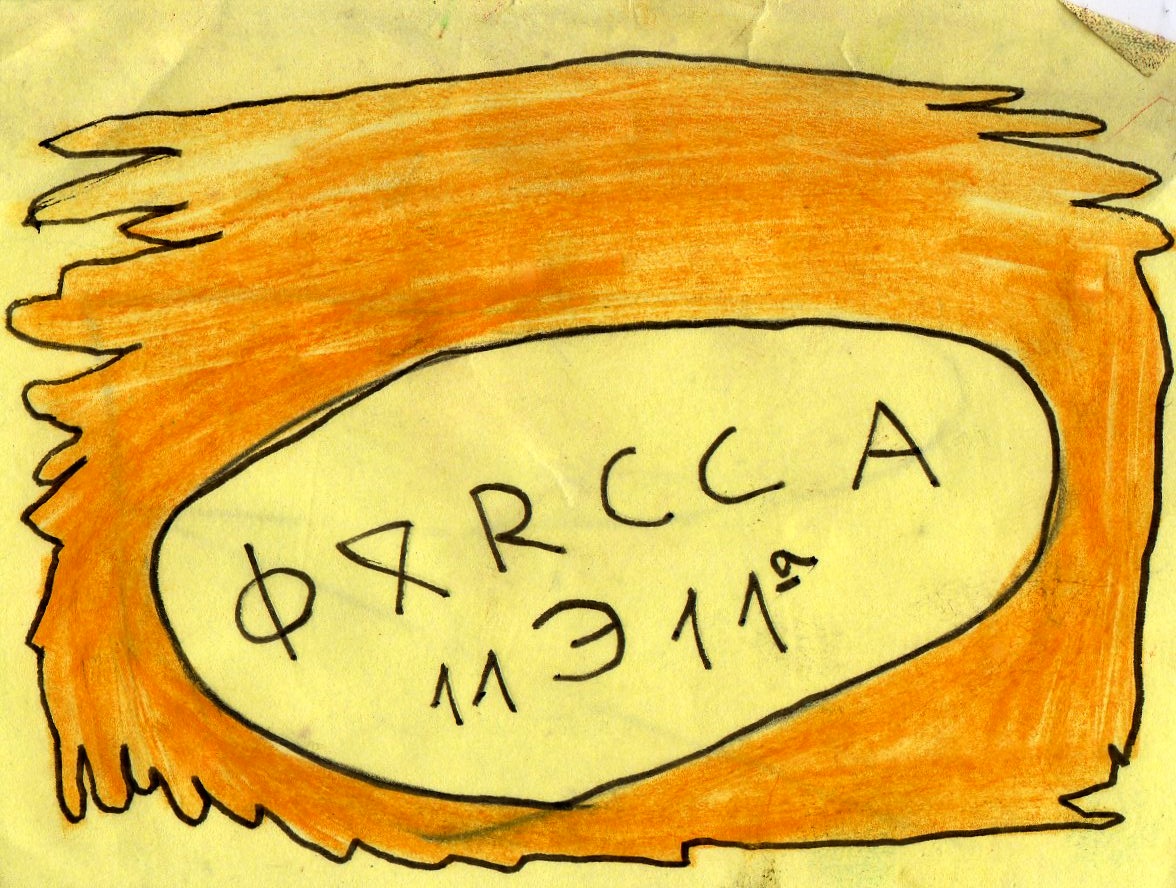 ФЯRCCA
11Э11ª